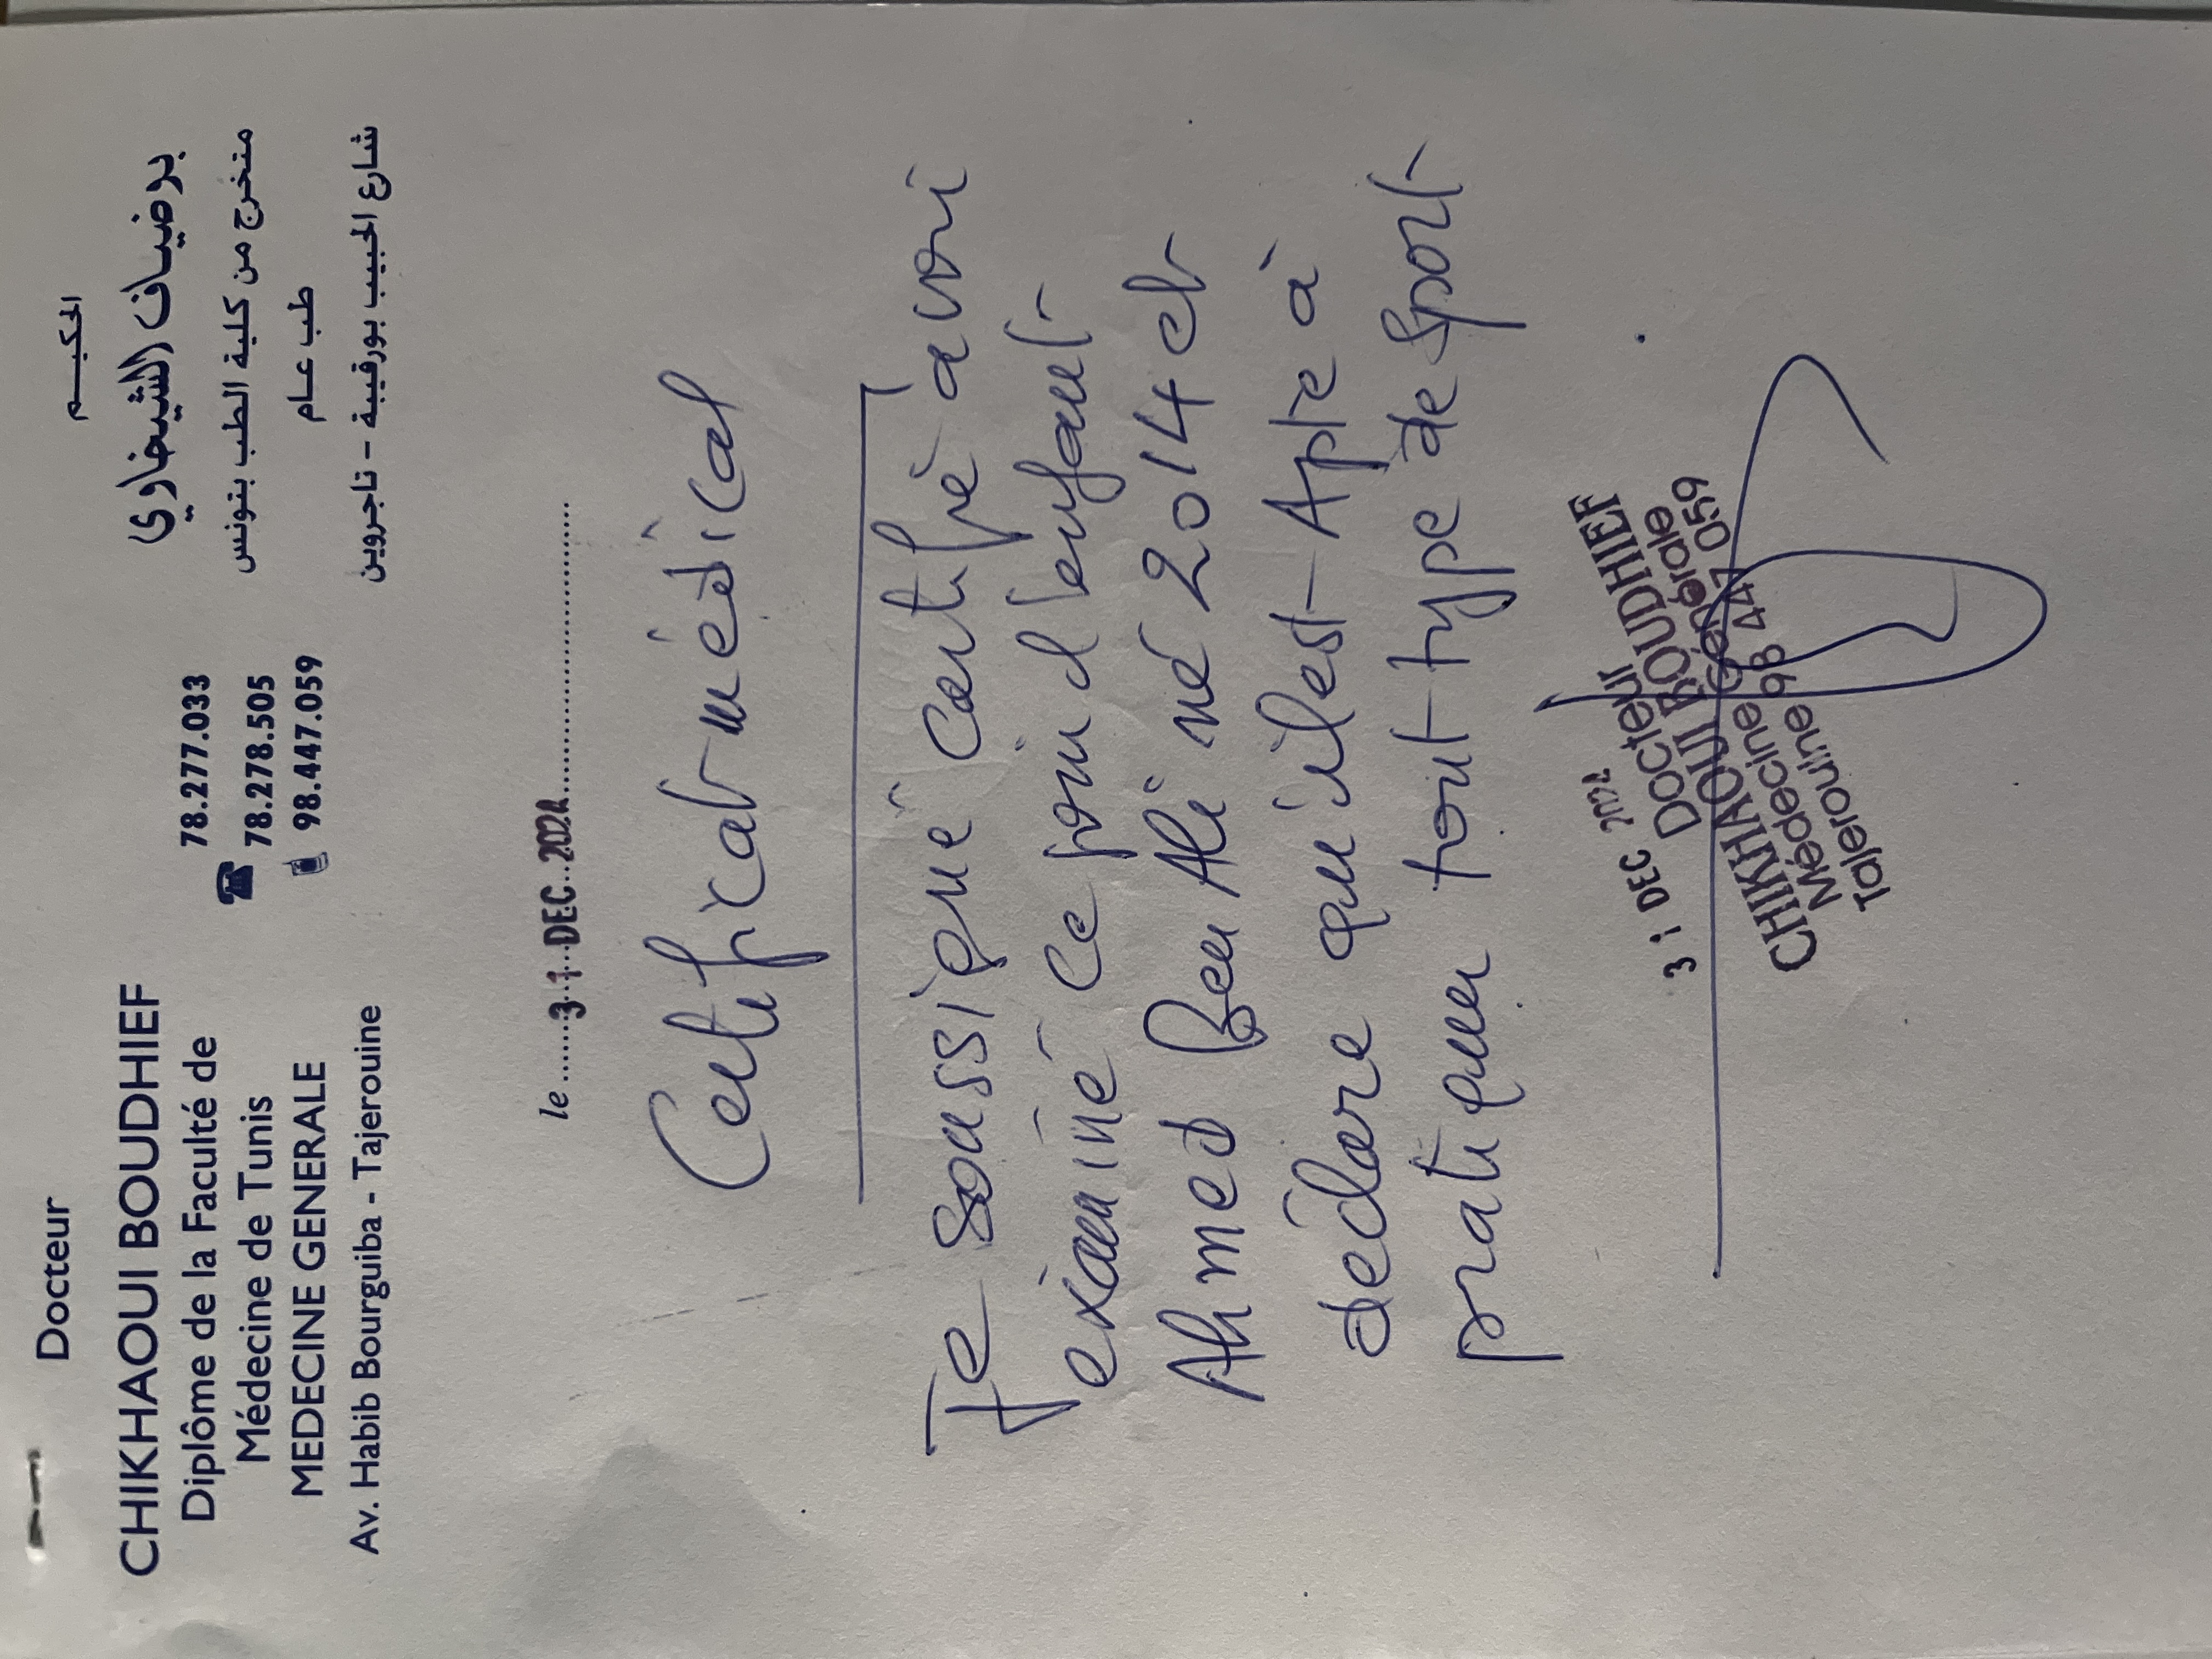 Docteur
CHIKHAOUI BOUDHIEF
Diplôme de la Faculté de
Médecine de Tunis
MEDECINE GENERALE
Av. Habib Bourguiba - Tajerouine
78.277.033
78.278.505
98.447.059
الحكيم
بوضياف الشيخاوي
متخرج من كلية الطب بتونس
طب عام
شارع الحبيب بورقيبة - تاجروين
le 31 DEC 2024
Certificat médical
Je soussigné certifié avoir
examiné ce jour l'enfant
Ahmed Ben Ali né 2014 et
déclare qu'il est Apte à
pratiquer tout type de sport
31 DEC
Docteur
CHIKHAOUI BOUDHIEF
Médecine Générale
Tajerouine 98 447 059